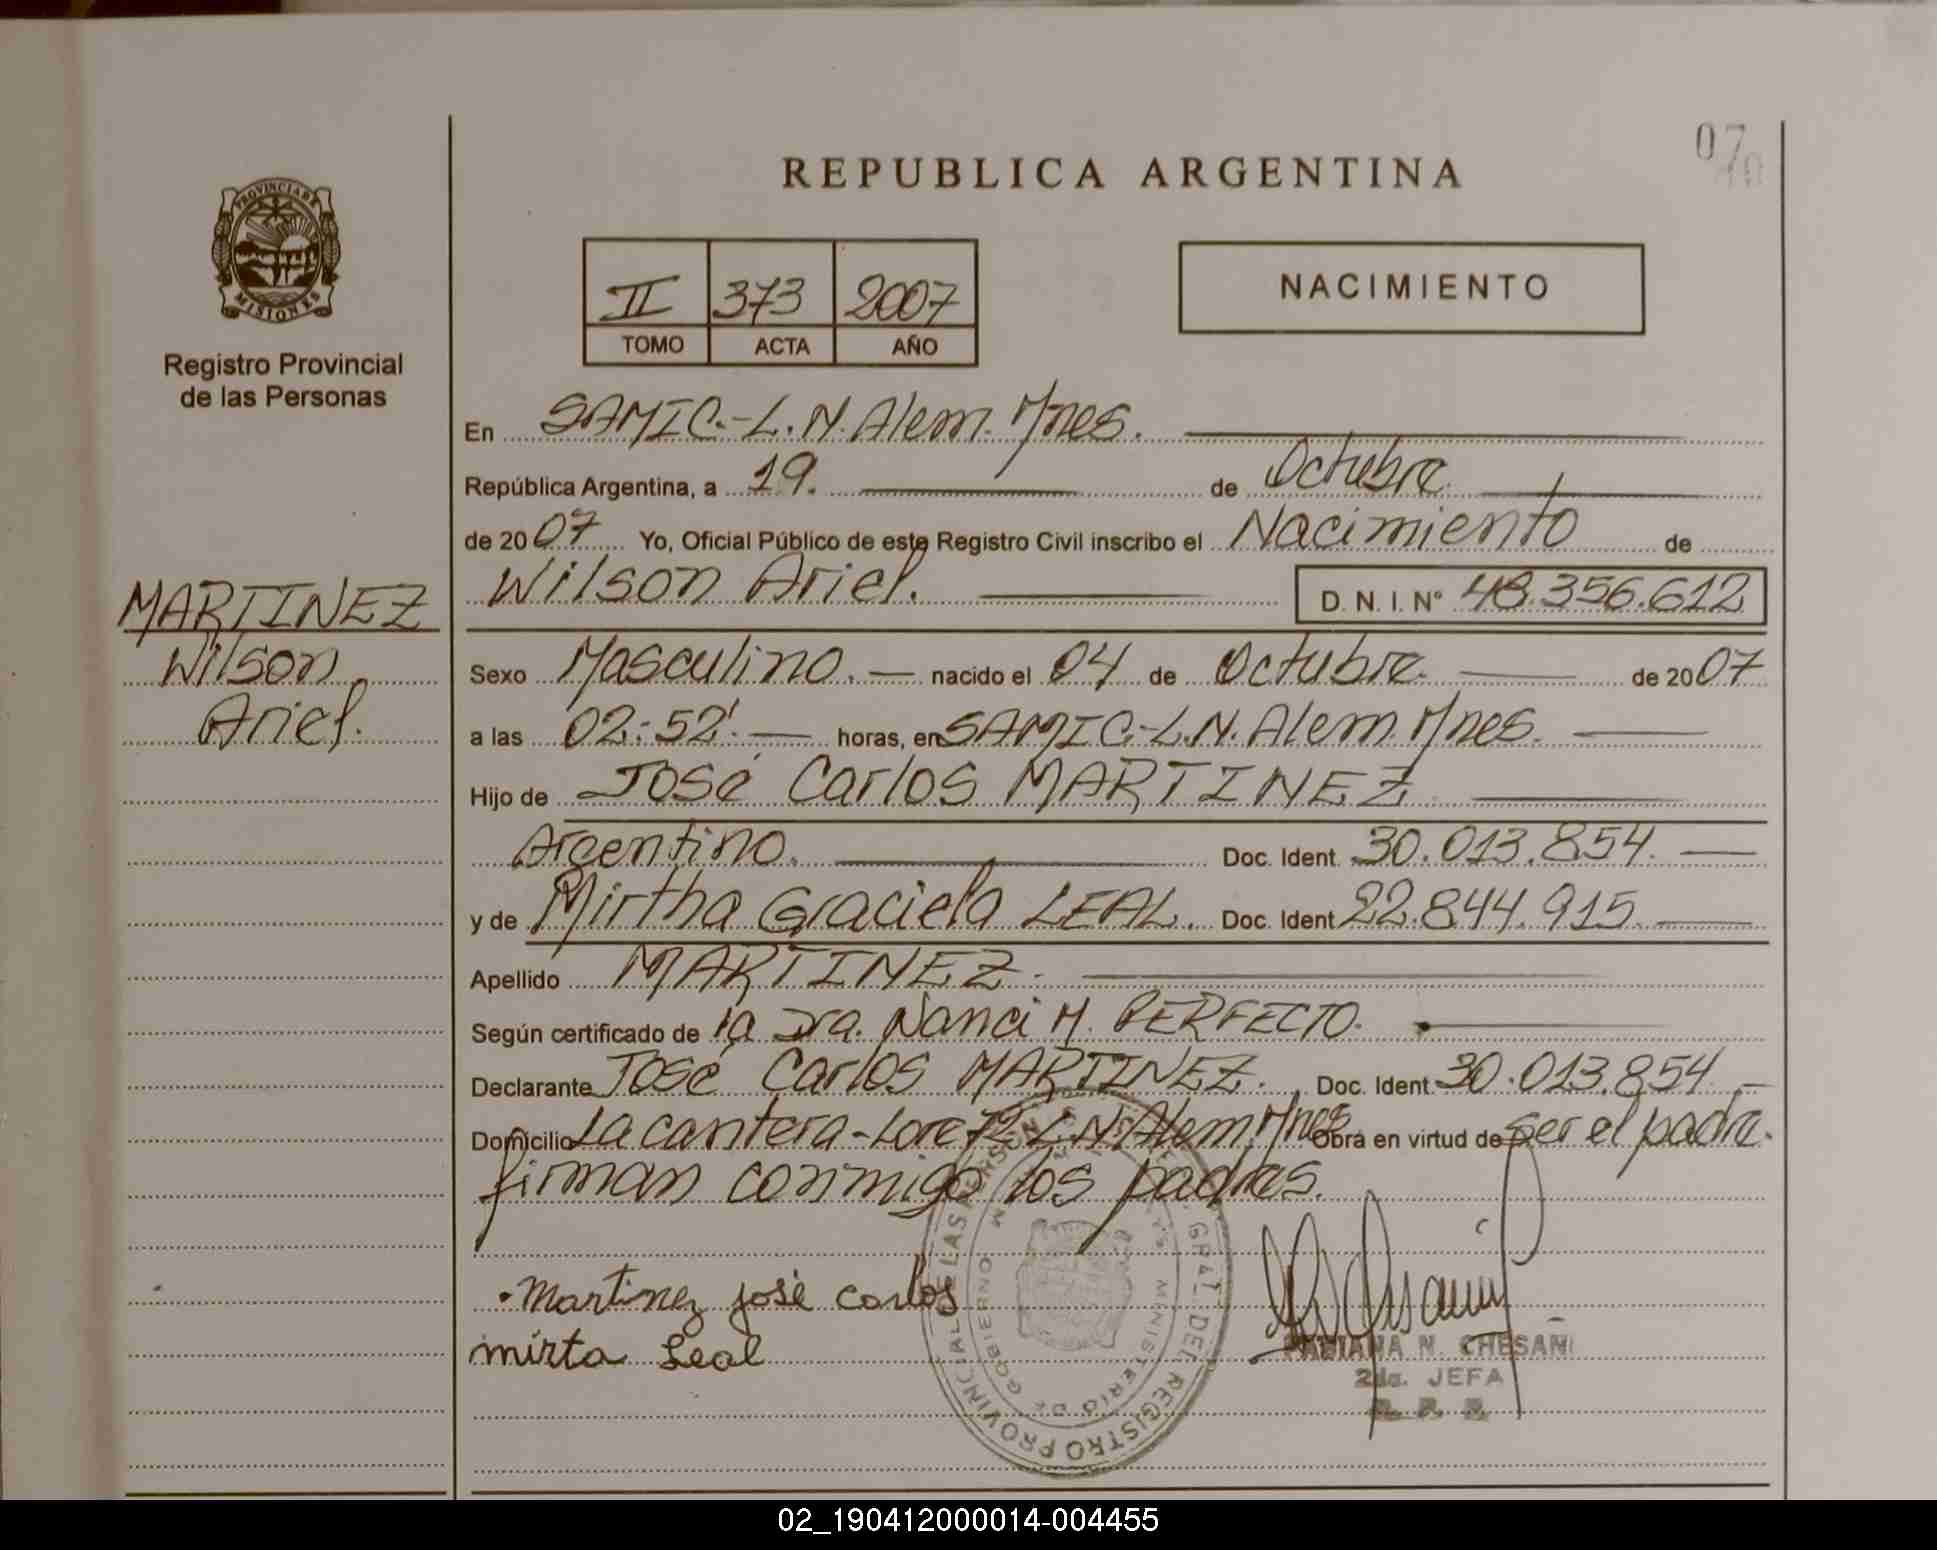 REPUBLICA ARGENTINA
07
PROVINCIA DE
MISIONES
Registro Provincial
de las Personas
II 373 2007
TOMO ACTA AÑO
NACIMIENTO
En SAMIC.-L.N.Alem.Mnes.
República Argentina, a 19. de Octubre
de 2007 Yo, Oficial Público de este Registro Civil inscribo el Nacimiento de
Wilson Ariel. D. N. I. N° 48.356.612
MARTINEZ
Wilson
Ariel.
Sexo Masculino. nacido el 04 de Octubre de 2007
a las 02:52'. horas, en SAMIC-L.N.Alem.Mnes.
Hijo de José Carlos MARTINEZ
Argentino. Doc. Ident. 30.013.854.
y de Mirtha Graciela LEAL. Doc. Ident 22.844.915.
Apellido MARTINEZ.
Según certificado de la Dra. Nanci M. PERFECTO.
Declarante José Carlos MARTINEZ. Doc. Ident. 30.013.854
Domicilio La cantera-Lote 72 L.N.Alem.Mnes Obra en virtud de ser el padre.
firman conmigo los padres.
Martinez josé carlos
mirta Leal
GRAL. DEL REGISTRO PROVINCIAL DE LAS PERSONAS
MINISTERIO DE GOBIERNO
FABIANA N. CHESANI
2da. JEFA
R. P. P.
02_190412000014-004455